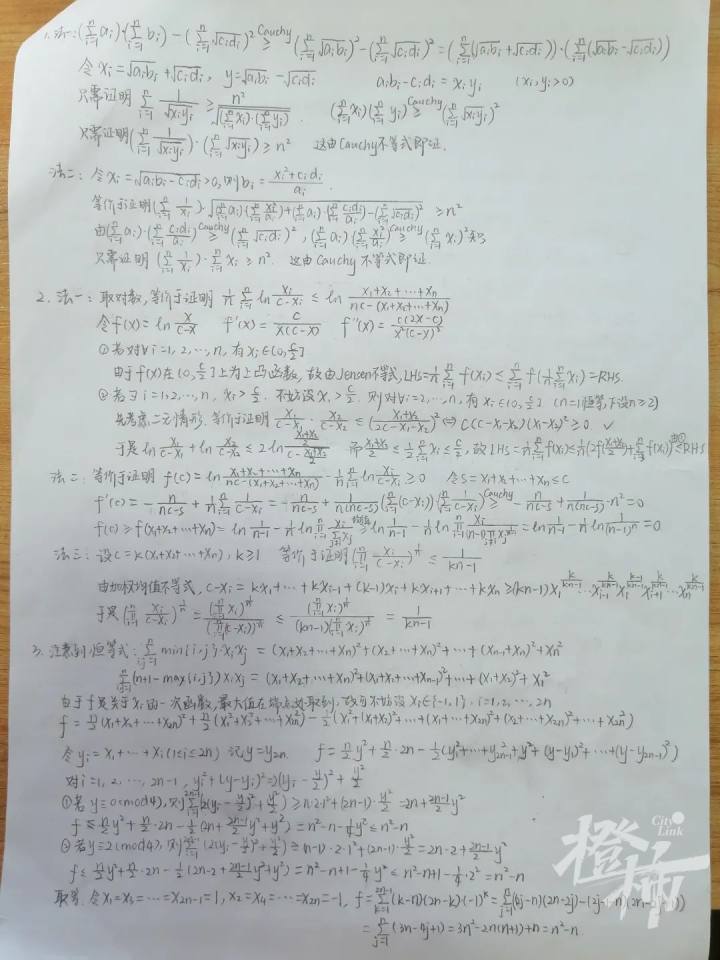 1. 法一: (∑_{i=1}^n a_i)(∑_{i=1}^n b_i) - (∑_{i=1}^n √(c_i d_i))² ≥^{Cauchy} (∑_{i=1}^n √(a_i b_i))² - (∑_{i=1}^n √(c_i d_i))² = (∑_{i=1}^n (√(a_i b_i) + √(c_i d_i)))·(∑_{i=1}^n (√(a_i b_i) - √(c_i d_i)))
令 x_i = √(a_i b_i) + √(c_i d_i), y = √(a_i b_i) - √(c_i d_i) a_i b_i - c_i d_i = x_i y_i (x_i, y_i > 0)
只需证明 ∑_{i=1}^n 1/√(x_i y_i) ≥ n²/√((∑_{i=1}^n x_i)·(∑_{i=1}^n y_i)) (∑_{i=1}^n x_i)(∑_{i=1}^n y_i) ≥^{Cauchy} (∑_{i=1}^n √(x_i y_i))²
只需证明 (∑_{i=1}^n 1/√(x_i y_i))·(∑_{i=1}^n √(x_i y_i)) ≥ n² 这由Cauchy不等式即证.
法二: 令 x_i = √(a_i b_i - c_i d_i) > 0, 则 b_i = (x_i² + c_i d_i)/a_i.
等价于证明 (∑_{i=1}^n 1/x_i)·√((∑_{i=1}^n a_i)(∑_{i=1}^n x_i²/a_i) + (∑_{i=1}^n a_i)·(∑_{i=1}^n c_i d_i/a_i) - (∑_{i=1}^n √(c_i d_i))²) ≥ n²
由(∑_{i=1}^n a_i)·(∑_{i=1}^n c_i d_i/a_i) ≥^{Cauchy} (∑_{i=1}^n √(c_i d_i))², (∑_{i=1}^n a_i)(∑_{i=1}^n x_i²/a_i) ≥^{Cauchy} (∑_{i=1}^n x_i)² 知
只需证明 (∑_{i=1}^n 1/x_i)·∑_{i=1}^n x_i ≥ n². 这由Cauchy不等式即证.
2. 法一: 取对数, 等价于证明 1/n ∑_{i=1}^n ln x_i/(c-x_i) ≤ ln (x_1+x_2+…+x_n)/(nc-(x_1+x_2+…+x_n))
令 f(x) = ln x/(c-x) f'(x) = c/(x(c-x)) f''(x) = c(2x-c)/(x²(c-x)²)
①若对∀i=1,2,…,n, 有 x_i∈(0, c/2]
由于f(x)在(0, c/2]上为上凸函数, 故由Jensen不等式, LHS = 1/n ∑_{i=1}^n f(x_i) ≤ f(1/n ∑_{i=1}^n x_i) = RHS.
②若∃i=1,2,…,n, x_i > c/2. 不妨设 x_1 > c/2. 则对∀i=2,…,n, 有 x_i∈(0, c/2]. (n=1恒等, 下设n≥2)
先考虑二元情形. 等价于证明 x_1/(c-x_1) · x_2/(c-x_2) ≤ ((x_1+x_2)/(2c-x_1-x_2))² ⟺ c(c-x_1-x_2)(x_1-x_2)² ≥ 0. ✓
于是 ln x_1/(c-x_1) + ln x_2/(c-x_2) ≤ 2 ln ((x_1+x_2)/2)/(c-(x_1+x_2)/2) 而 (x_1+x_2)/2 ≤ 1/2 ∑_{i=1}^n x_i ≤ c/2, 故 LHS = 1/n ∑_{i=1}^n f(x_i) ≤ 1/n (2f((x_1+x_2)/2) + ∑_{i=3}^n f(x_i)) ≤^{由①} RHS
法二: 等价于证明 f(c) = ln (x_1+x_2+…+x_n)/(nc-(x_1+x_2+…+x_n)) - 1/n ∑_{i=1}^n ln x_i/(c-x_i) ≥ 0 令 S = x_1+x_2+…+x_n ≤ c
f'(c) = -n/(nc-s) + 1/n ∑_{i=1}^n 1/(c-x_i) = -n/(nc-s) + 1/(n(nc-s)) (∑_{i=1}^n (c-x_i))(∑_{i=1}^n 1/(c-x_i)) ≥^{Cauchy} -n/(nc-s) + 1/(n(nc-s))·n² = 0
f(c) ≥ f(x_1+x_2+…+x_n) = ln 1/(n-1) - 1/n ln ∏_{i=1}^n x_i/∑_{j≠i} x_j ≥^{均值} ln 1/(n-1) - 1/n ln ∏_{i=1}^n x_i/((n-1)∏_{j≠i} x_j^{1/(n-1)}) = ln 1/(n-1) - 1/n ln 1/(n-1)^n = 0
法三: 设 c = k(x_1+x_2+…+x_n), k≥1 等价于证明 (∏_{i=1}^n x_i/(c-x_i))^{1/n} ≤ 1/(kn-1)
由加权均值不等式, c-x_i = kx_1+…+kx_{i-1}+(k-1)x_i+kx_{i+1}+…+kx_n ≥ (kn-1) x_1^{k/(kn-1)}…x_{i-1}^{k/(kn-1)} x_i^{(k-1)/(kn-1)} x_{i+1}^{k/(kn-1)}…x_n^{k/(kn-1)}
于是 (∏_{i=1}^n x_i/(c-x_i))^{1/n} = (∏_{i=1}^n x_i)^{1/n}/(∏_{i=1}^n (c-x_i))^{1/n} ≤ (∏_{i=1}^n x_i)^{1/n}/((kn-1)(∏_{i=1}^n x_i)^{1/n}) = 1/(kn-1)
3. 注意到恒等式: ∑_{i,j=1}^n min{i,j}·x_i x_j = (x_1+x_2+…+x_n)² + (x_2+…+x_n)² + … + (x_{n-1}+x_n)² + x_n²
∑_{i,j=1}^n (n+1-max{i,j}) x_i x_j = (x_1+x_2+…+x_n)² + (x_1+x_2+…+x_{n-1})² + … + (x_1+x_2)² + x_1²
由于f是关于x_i的一次函数, 最大值在端点处取到, 故可不妨设 x_i∈{-1,1}, i=1,2,…,2n
f = n/2 (x_1+x_2+…+x_{2n})² + n/2 (x_1²+x_2²+…+x_{2n}²) - 1/2 (x_1²+(x_1+x_2)²+…+(x_1+…+x_{2n})²+(x_2+…+x_{2n})²+…+x_{2n}²)
令 y_i = x_1+…+x_i (1≤i≤2n) 记 y = y_{2n}. f = n/2 y² + n/2·2n - 1/2 (y_1²+…+y_{2n-1}²+y²+(y-y_1)²+…+(y-y_{2n-1})²)
对 i=1,2,…,2n-1, y_i²+(y-y_i)² = 2(y_i - y/2)² + y²/2
①若 y≡0 (mod4), 则 ∑_{i=1}^{2n-1} (2(y_i - y/2)² + y²/2) ≥ n·2·1² + (2n-1)·y²/2 = 2n + (2n-1)/2 y²
f ≤ n/2 y² + n/2·2n - 1/2 (2n + (2n-1)/2 y² + y²) = n²-n-1/4 y² ≤ n²-n
②若 y≡2 (mod4), 则 ∑_{i=1}^{2n-1} (2(y_i - y/2)² + y²/2) ≥ (n-1)·2·1² + (2n-1)·y²/2 = 2n-2 + (2n-1)/2 y²
f ≤ n/2 y² + n/2·2n - 1/2 (2n-2 + (2n-1)/2 y² + y²) = n²-n+1-1/4 y² ≤ n²-n+1-1/4·2² = n²-n
取等: 令 x_1=x_3=…=x_{2n-1}=1, x_2=x_4=…=x_{2n}=-1, f = ∑_{k=1}^{2n-1} (k-n)(2n-k)(-1)^k
= ∑_{j=1}^n (3n-4j+1) = 3n²-2n(n+1)+n = n²-n.
City Link
橙柿